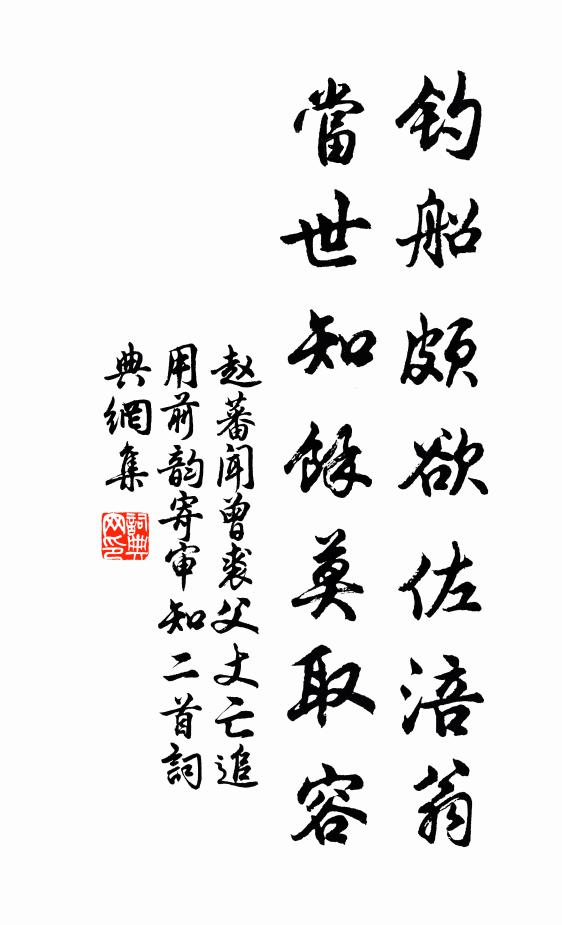 钓船颇欲佐涪翁
當世知餘莫取容
赵蕃闻曾裘父丈亡追
用前韵寄审知二首詞
典網集
詞典网印